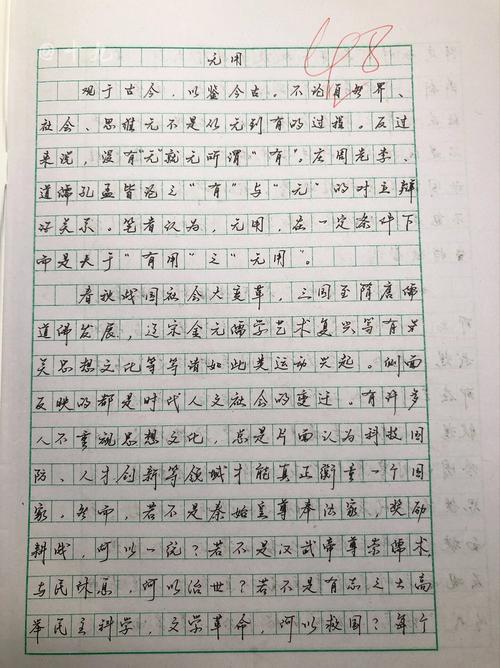 @十九
48
无用
观于古今，以鉴今古。不论自然界、
社会、思维无不是从无到有的过程。反过
来说，没有"无"就无所谓"有"。庄周老李、
道儒孔孟皆论之"有"与"无"的对立辩
证关系。笔者认为，无用，在一定条件下
而是大于"有用"之"无用"。
春秋战国社会大变革，三国至隋唐儒
道佛发展，辽宋金元儒学艺术复兴等有关
思想文化等等诸如此类运动兴起。侧面
反映的都是时代人文社会的变迁。有许多
人不重视思想文化，总是片面认为科技国
防、人才创新等领域才能真正衡量一个国
家。然而，若不是秦始皇尊奉法家，奖励
耕战，何以一统？若不是汉武帝尊崇儒术
与民休息，何以治世？若不是有志之士高
举民主科学，文学革命，何以救国？每个